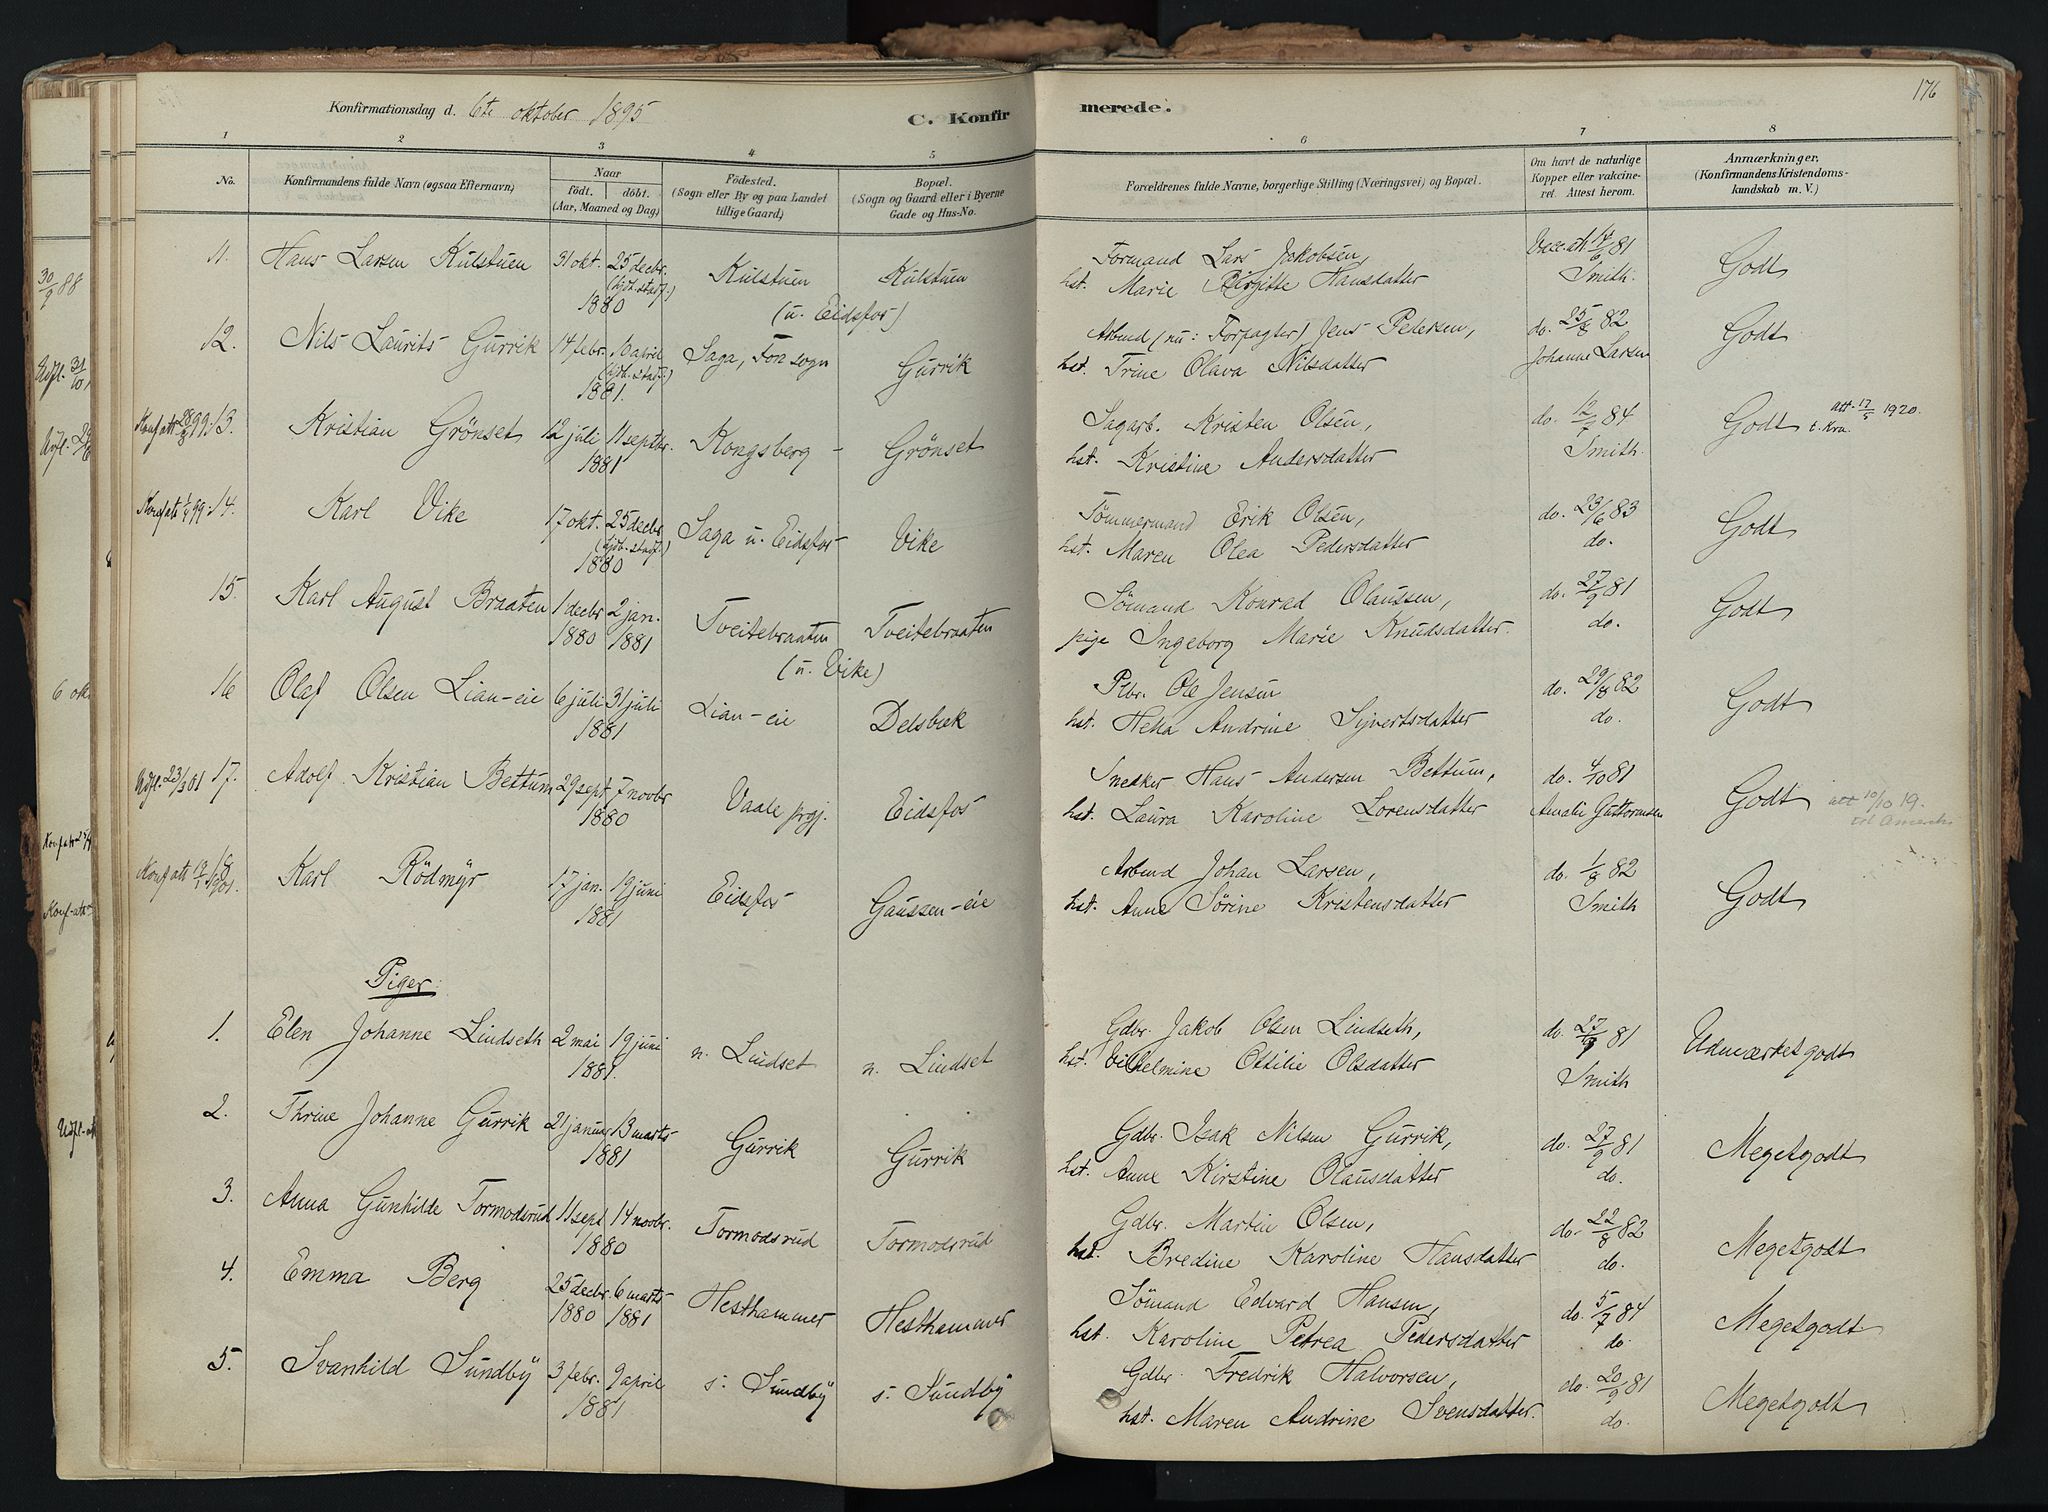 Konfirmationsdag d. 6te oktober 1895
C. Konfirmerede.
176
1 2 3 4 5 6 7 8
No.
Konfirmandens fulde Navn (ogsaa Efternavn)
Naar
födt. döbt.
(Aar, Maaned og Dag)
Födested.
(Sogn eller By og paa Landet
tillige Gaard)
Bopæl.
(Sogn og Gaard eller i Byerne
Gade og Hus-No.
Forældrenes fulde Navne, borgerlige Stilling (Næringsvei) og Bopæl.
Om havt de naturlige
Kopper eller vakcine-
ret. Attest herom.
Anmærkninger.
(Konfirmandens Kristendoms-
kundskab m. V.)
11. Hans Larsen Kulstuen 31 okt. 25 decbr. (hjdb. stadf.) 1880 Kulstuen (u. Eidsfos) Kulstuen
Formand Lars Jakobsen, Vacc. att. 14/6 81
hst. Marie Birgitte Hansdatter Smith. Godt
12. Nils Laurits Gurrik 14 febr. 18 april (hjdb. stadf.) 1881. Saga, Fon sogn Gurrik
Arbmd (nu: Forpagter) Jens Pedersen, do. 25/8 82
hst. Trine Olava Nilsdatter Johanne Larsen Godt
Konf att 28/8 99: 13. Kristian Grönset 12 juli 11 septbr. 1881 Kongsberg - Grönset
Sagarb. Kristen Olsen, do. 12/7 84
hst. Kristine Andersdatter Smith. Godt att. 17/5 1920. t. Kra.
Konf att 1/4 99: 14. Karl Vike 17 okt. 25 decbr. (hjdb. stadf.) 1880 Saga u. Eidsfos - Vike
Tömmermand Erik Olsen, do. 23/6 83
hst. Maren Olea Pedersdatter do. Godt
15. Karl August Braaten 1 decbr 1880 2 jan. 1881 Tveitebraaten (u. Vike) Tveitebraaten
Sömand Konrad Olaussen, do. 27/9 81
pige Ingeborg Marie Knudsdatter. do. Godt
16 Olaf Olsen Lian-eie 6 juli 31 juli 1881 Lian-eie Delsbæk
Plbr. Ole Jensen do. 29/8 82
hst. Helia Andrine Sijvertsdatter do. Godt
Udfl. 23/3 01 17. Adolf Kristian Bettum 29 sept 7 novbr 1880 Vaale prgj. Eidsfos
Snedker Hans Andersen Bettum, do. 4/10 81
hst. Laura Karoline Lorensdatter Amalie Guttormsen Godt att 10/10 19. til Amerika
Konf att 1901. 18 Karl Rödmyr 17 jan. 19 juni 1881 Eidsfos Gaussen-eie
Arbmd Johan Larsen, do. 1/8 82
hst. Anne Sörine Kristensdatter Smith Godt
Piger.
1. Elen Johanne Lindseth 2 mai 19 juni 1881. n. Lindset n. Lindset
Gdbr. Jakob Olsen Lindseth, do. 27/9 81
hst. Vilhelmine Ottilie Olsdatter Smith Udmærketgodt
2. Thrine Johanne Gurrik 21 januar 13 marts 1881 Gurrik Gurrik
Gdbr. Isak Nilsen Gurrik, do. 27/9 81
hst. Anne Kirstine Olausdatter do. Megetgodt
3. Anna Gunhilde Tormodsrud 11 sept 14 novbr. 1880 Tormodsrud Tormodsrud
Gdbr. Martin Olsen, do. 22/8 82
hst. Bredine Karoline Hansdatter do. Megetgodt
4. Emma Berg 25 decbr. 1880 6 marts 1881 Hesthammer Hesthammer
Sömand Edvard Hansen, do. 5/7 84
hst. Karoline Petrea Pedersdatter do Megetgodt
5. Svanhild Sundby 3 febr. 9 april 1881 s. Sundby s. Sundby
Gdbr. Fredrik Halvorsen, do. 20/9 81
hst. Maren Andrine Svensdatter. do. Megetgodt
30/9 88
Udfl. 31/10
6 okt